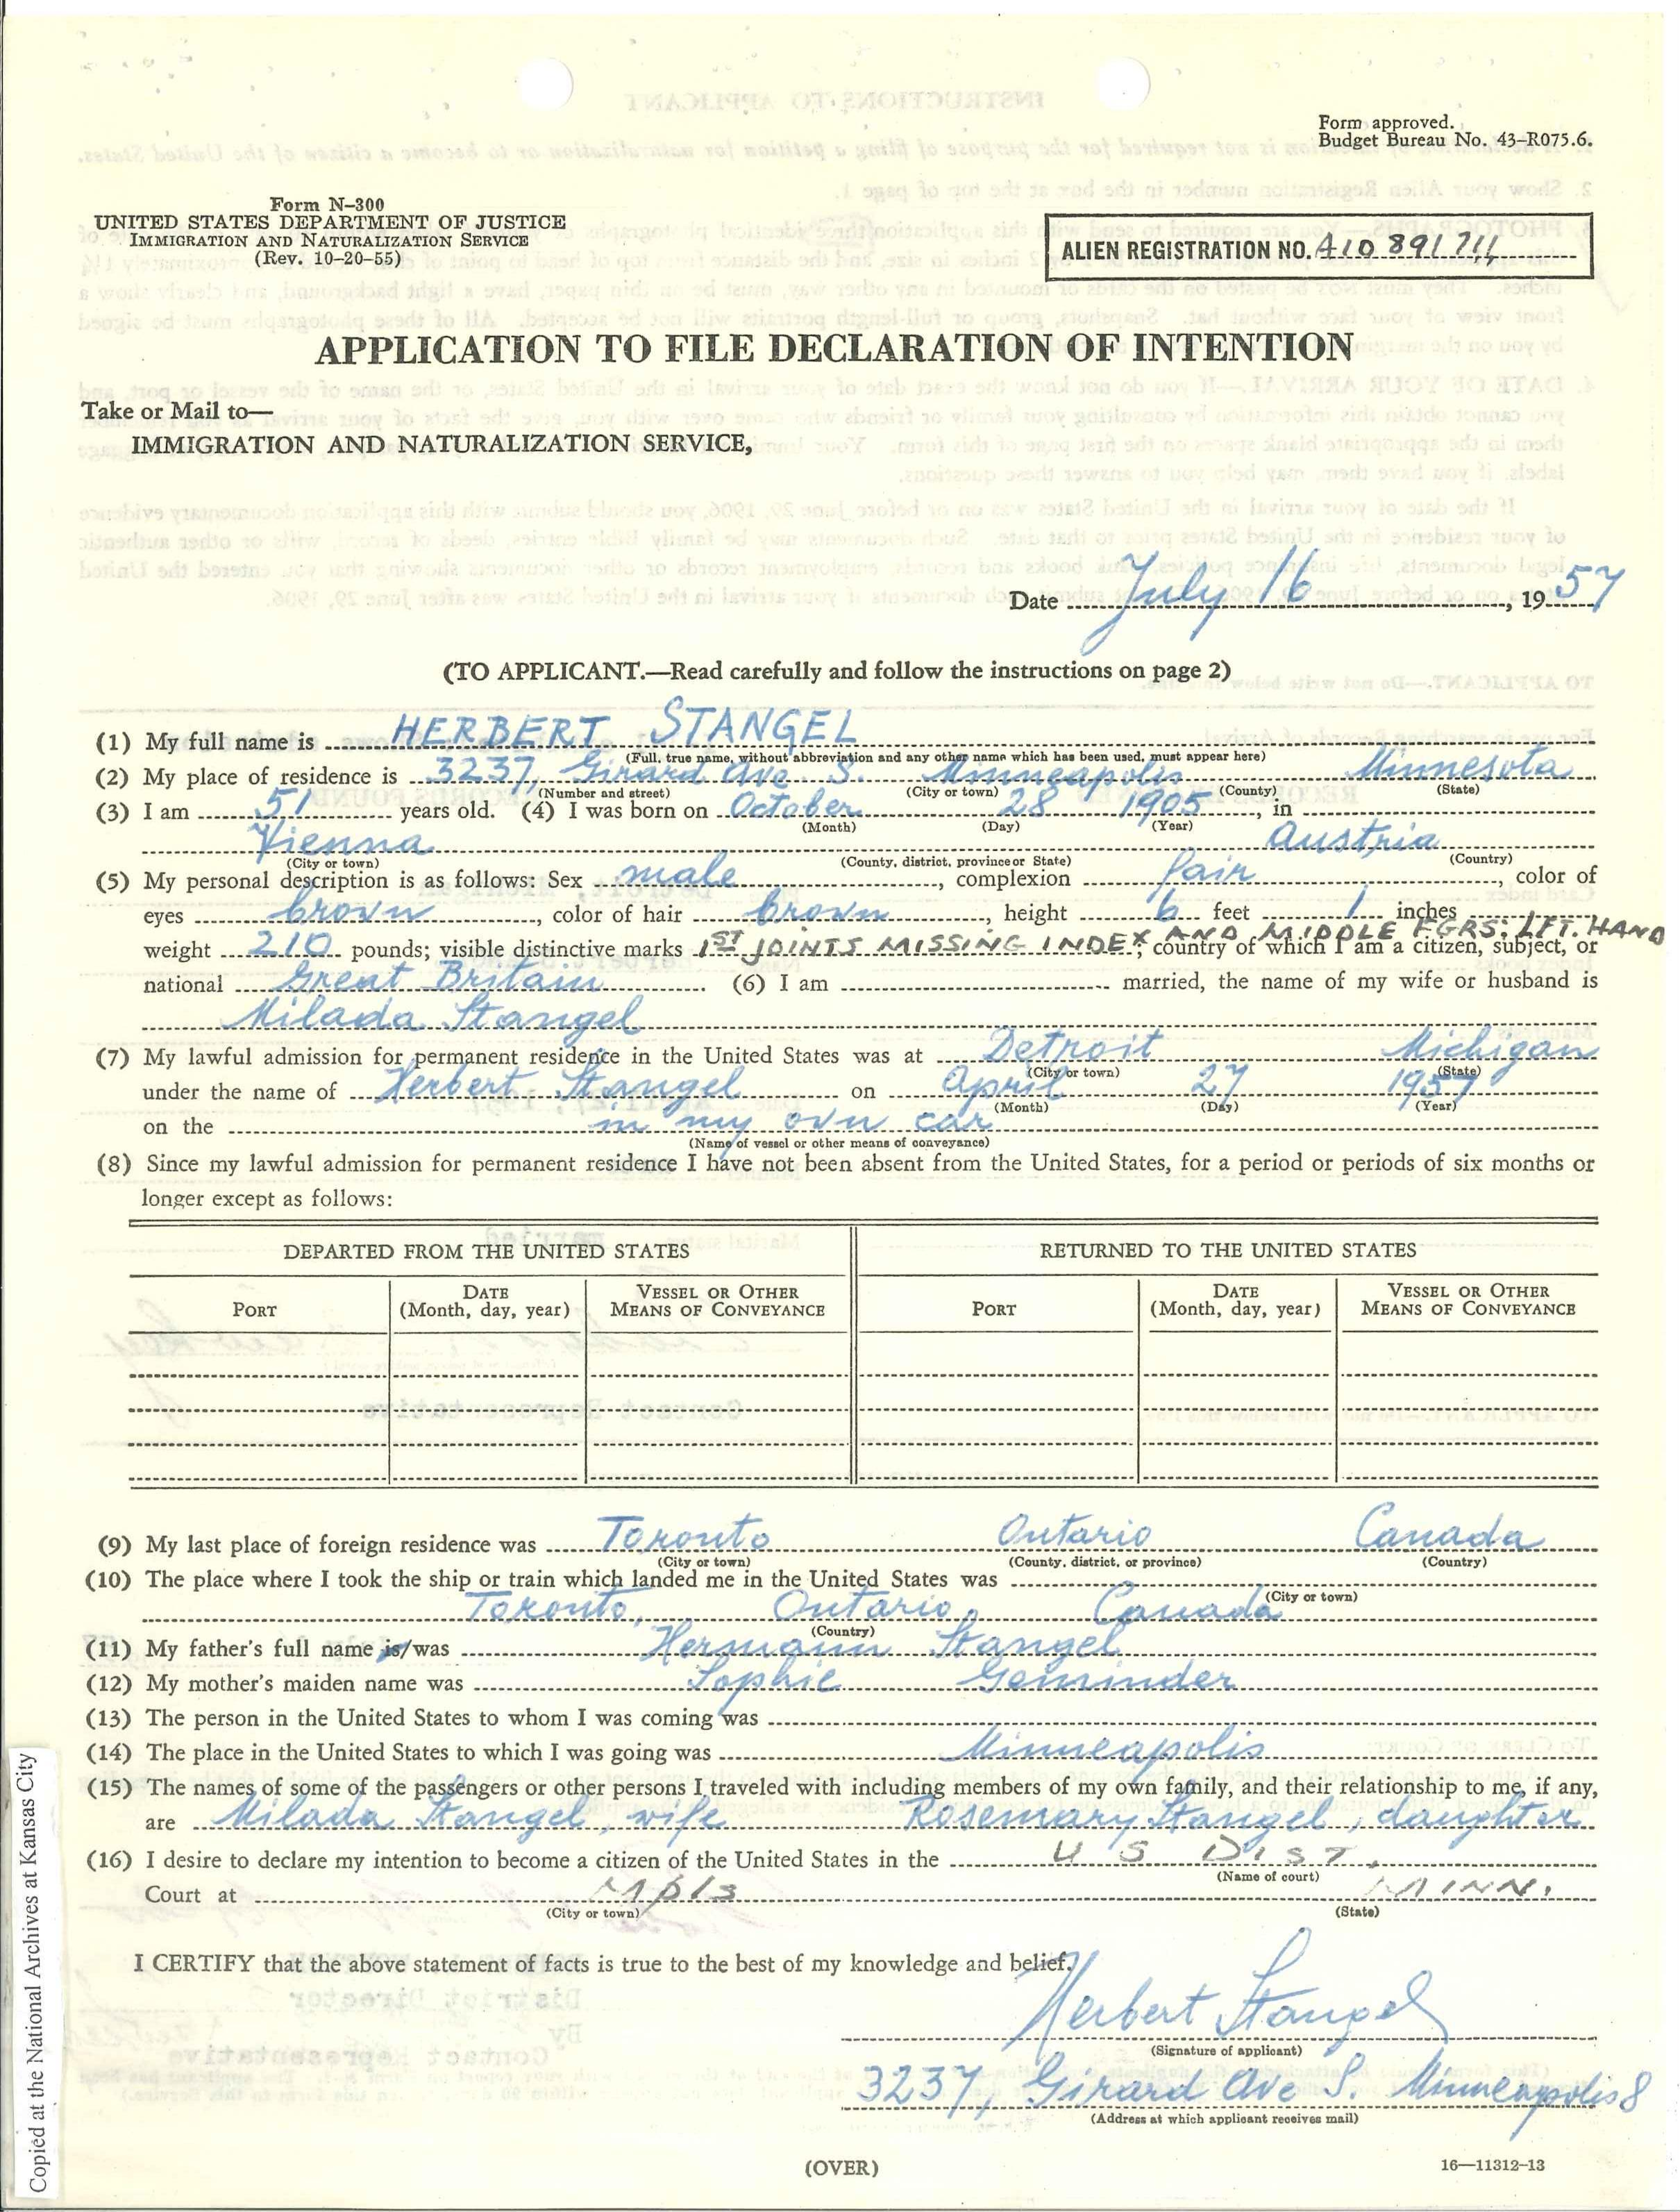 Form approved.
Budget Bureau No. 43—R075.6.
Form N—300
UNITED STATES DEPARTMENT OF JUSTICE
IMMIGRATION AND NATURALIZATION SERVICE
(Rev. 10-20-55)
ALIEN REGISTRATION NO. A10 891 711
APPLICATION TO FILE DECLARATION OF INTENTION
Take or Mail to—
IMMIGRATION AND NATURALIZATION SERVICE,
Date July 16, 1957
(TO APPLICANT.—Read carefully and follow the instructions on page 2)
(1) My full name is HERBERT STANGEL
(Full, true name, without abbreviation and any other name which has been used, must appear here)
(2) My place of residence is 3237, Girard Ave. S. Minneapolis Minnesota
(Number and street) (City or town) (County) (State)
(3) I am 51 years old. (4) I was born on October 28 1905, in
(Month) (Day) (Year)
Vienna Austria
(City or town) (County, district, province or State) (Country)
(5) My personal description is as follows: Sex male, complexion fair, color of
eyes brown, color of hair brown, height 6 feet 1 inches
weight 210 pounds; visible distinctive marks 1ST JOINTS MISSING INDEX AND MIDDLE FGRS. LFT. HAND; country of which I am a citizen, subject, or
national Great Britain. (6) I am married, the name of my wife or husband is
Milada Stangel
(7) My lawful admission for permanent residence in the United States was at Detroit Michigan
(City or town) (State)
under the name of Herbert Stangel on April 27 1957
(Month) (Day) (Year)
on the in my own car
(Name of vessel or other means of conveyance)
(8) Since my lawful admission for permanent residence I have not been absent from the United States, for a period or periods of six months or
longer except as follows:
DEPARTED FROM THE UNITED STATES RETURNED TO THE UNITED STATES
PORT DATE (Month, day, year) VESSEL OR OTHER MEANS OF CONVEYANCE PORT DATE (Month, day, year) VESSEL OR OTHER MEANS OF CONVEYANCE
(9) My last place of foreign residence was Toronto Ontario Canada
(City or town) (County, district, or province) (Country)
(10) The place where I took the ship or train which landed me in the United States was
(City or town)
Toronto, Ontario, Canada
(Country)
(11) My father's full name is/was Hermann Stangel
(12) My mother's maiden name was Sophie Geminder
(13) The person in the United States to whom I was coming was
(14) The place in the United States to which I was going was Minneapolis
(15) The names of some of the passengers or other persons I traveled with including members of my own family, and their relationship to me, if any,
are Milada Stangel, wife Rosemary Stangel, daughter
(16) I desire to declare my intention to become a citizen of the United States in the U S DIST.
(Name of court)
Court at Mpls MINN.
(City or town) (State)
I CERTIFY that the above statement of facts is true to the best of my knowledge and belief.
Herbert Stangel
(Signature of applicant)
3237, Girard Ave S. Minneapolis 8
(Address at which applicant receives mail)
(OVER)
16—11312-13
Copied at the National Archives at Kansas City